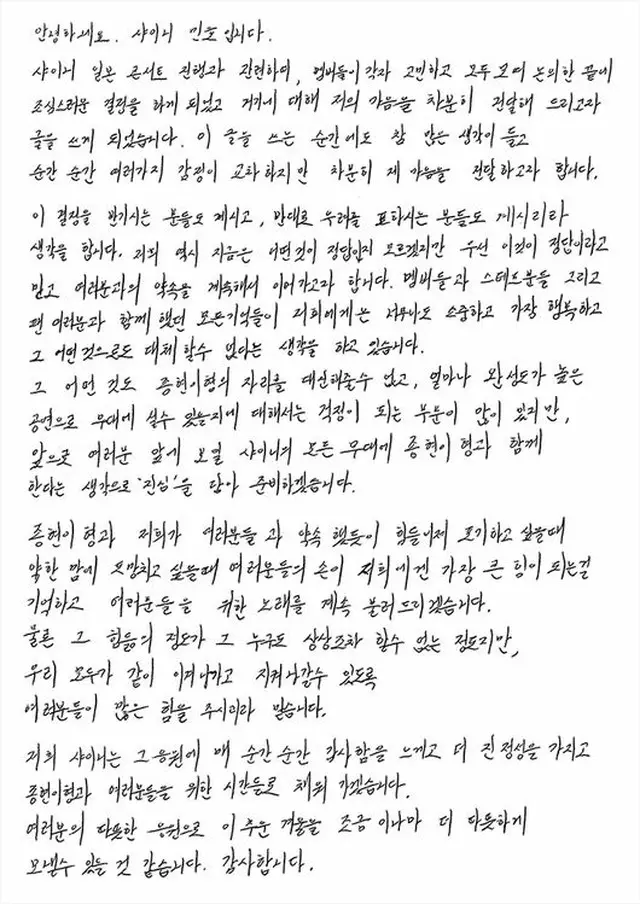 안녕하세요. 샤이니 민호입니다.
샤이니 일본 콘서트 진행과 관련하여, 멤버들이 각자 고민하고 모두 모여 논의한 끝에
조심스러운 결정을 하게 되었고 거기에 대해 저의 마음을 차분히 전달해 드리고자
글을 쓰게 되었습니다. 이 글을 쓰는 순간에도 참 많은 생각이 들고
순간 순간 여러가지 감정이 교차하지만 차분히 제 마음을 전달하고자 합니다.
이 결정을 반기시는 분들도 계시고, 반대로 우려를 표하시는 분들도 계시리라
생각을 합니다. 저희 역시 지금은 어떤것이 정답인지 모르겠지만 우선 이것이 정답이라고
믿고 여러분과의 약속을 계속해서 이어가고자 합니다. 멤버들과 스태프분들 그리고
팬 여러분과 함께 했던 모든기억들이 저희에게는 너무나도 소중하고 가장 행복하고
그 어떤것으로도 대체 할수 없다는 생각을 하고 있습니다.
그 어떤 것도 종현이형의 자리를 대신해줄수 없고, 얼마나 완성도가 높은
공연으로 무대에 설수 있을지에 대해서는 걱정이 되는 부분이 많이 있지만,
앞으로 여러분 앞에 보일 샤이니의 모든 무대에 종현이 형과 함께
한다는 생각으로 '진심'을 담아 준비하겠습니다.
종현이형과 저희가 여러분들과 약속 했듯이 힘들어서 포기하고 싶을때
약한 맘에 도망치고 싶을때 여러분들의 손이 저희에겐 가장 큰 힘이 되는걸
기억하고 여러분들을 위한 노래를 계속 불러드리겠습니다.
물론 그 힘듦의 정도가 그 누구도 상상조차 할수 없는 정도지만,
우리 모두가 같이 이겨나가고 지켜나갈수 있도록
여러분들이 많은 힘을 주시리라 믿습니다.
저희 샤이니는 그 응원에 매 순간순간 감사함을 느끼고 더 진정성을 가지고
종현이형과 여러분들을 위한 시간들로 채워 가겠습니다.
여러분의 따뜻한 응원으로 이 추운 겨울을 조금 이나마 더 따뜻하게
보낼수 있을 것 같습니다. 감사합니다.